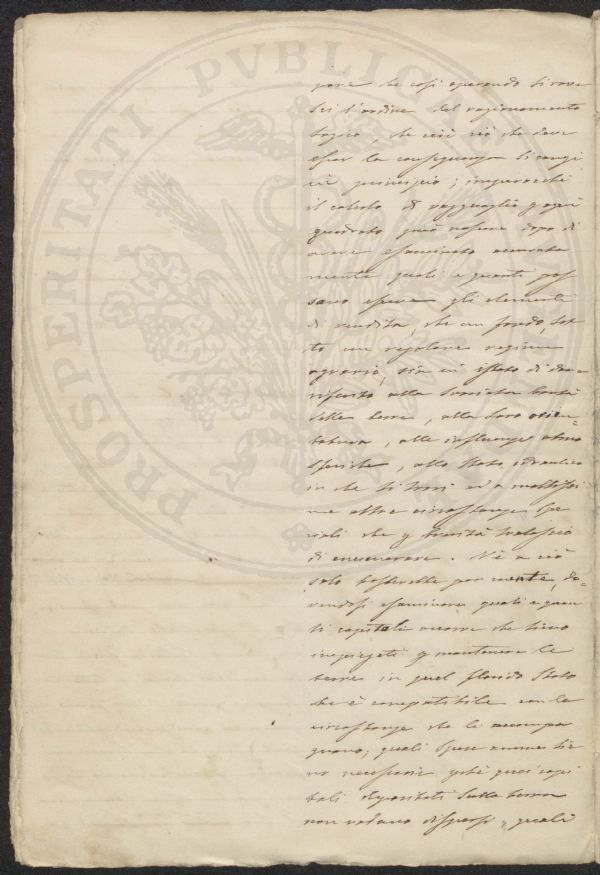 PROSPERITATI PVBLICAE
pare che così operando si rove
sci l'ordine del ragionamento
logico, che cioè ciò che deve
esser la conseguenza si cangi
in principio; imperocchè
il calcolo di ragguaglio p ogni
quadrato può nascere dopo di
avere esaminato accurata
mente quali e quanti pos
sano essere gli elementi
di rendita, che un fondo, sot
to un regolare regime
agrario, sia in istato di dare
riscuito alla svariata bontà
delle terre, alla loro orien=
tatura, alle influenze atmo
sferiche, allo stato idraulico
in che si trovi ed a moltissi
me altre circostanze spe
ciali che p brevità tralascio
di enumerare. Nè a ciò
solo basterebbe por mente, do=
vendosi esaminare quali e quan
ti capitali occorre che sieno
impiegati p mantenere le
terre in quel florido stato
che è compatibile con le
circostanze che le accompa
gnano; quali spese annue sie
no necessarie pchè quei capi
tali depositati sulla terra
non vadano dispersi, quali